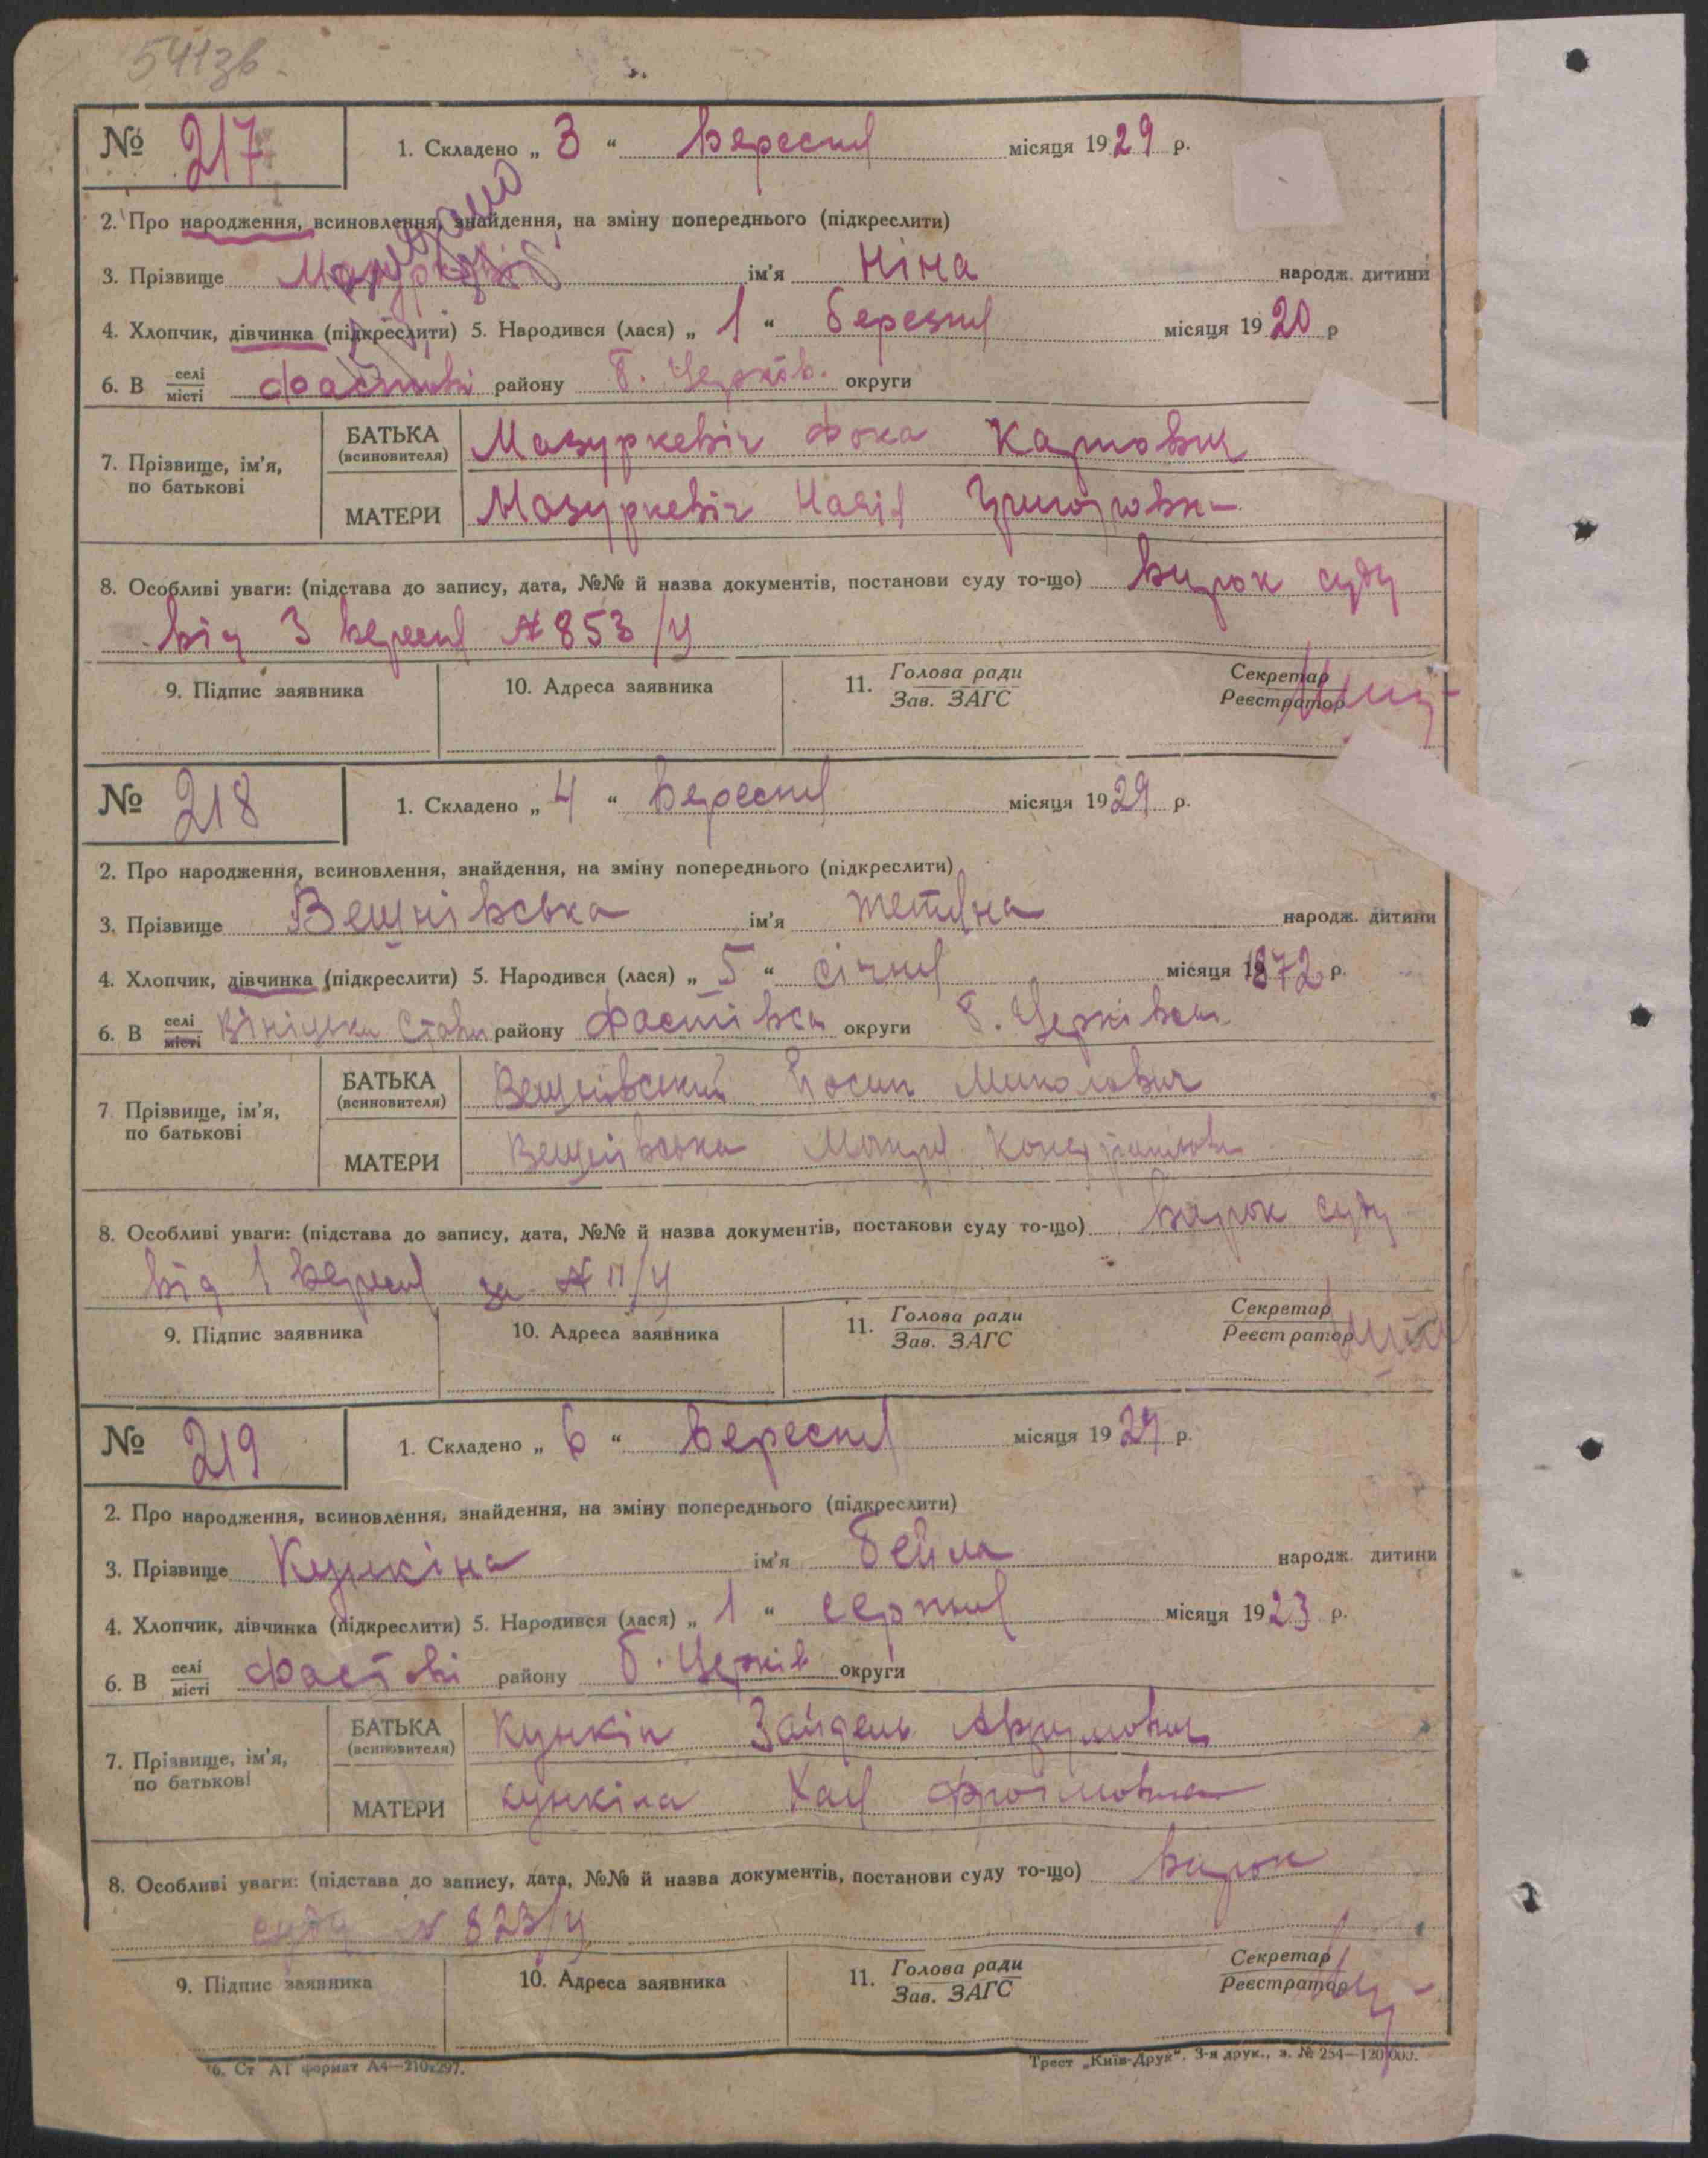 541зв.
№ 217
1. Складено „ 3 “ вересня місяця 1929 р.
2. Про народження, всиновлення, знайдення, на зміну попереднього (підкреслити)
3. Прізвище ім'я Ніна народж. дитини
4. Хлопчик, дівчинка (підкреслити) 5. Народився (лася) „ 1 “ березня місяця 1920 р
6. В селі місті Фастові району Б. Церков. округи
7. Прізвище, ім'я, по батькові
БАТЬКА (всиновителя) Мазуркевіч Фока Карпович
МАТЕРИ Мазуркевіч Григоровн
8. Особливі уваги: (підстава до запису, дата, №№ й назва документів, постанови суду то-що) Вирок суду
від 3 вересня № 853/ц
9. Підпис заявника 10. Адреса заявника 11. Голова ради Зав. ЗАГС Секретар Реєстратор
№ 218
1. Складено „ 4 “ вересня місяця 1929 р.
2. Про народження, всиновлення, знайдення, на зміну попереднього (підкреслити)
3. Прізвище Вешнівська ім'я Тетяна народж. дитини
4. Хлопчик, дівчинка (підкреслити) 5. Народився (лася) „ 5 “ січня місяця 1872 р.
6. В селі місті Вініцьки Стави району Фастівськ округи Б. Церківськ.
7 Прізвище, ім'я, по батькові
БАТЬКА (всиновителя) Вешнівський Йосип Миколович
МАТЕРИ Вешнівська
8. Особливі уваги: (підстава до запису, дата, №№ й назва документів, постанови суду то-що) Вирок суду
від 1 вересня за № 11/ц
9. Підпис заявника 10. Адреса заявника 11. Голова ради Зав. ЗАГС Секретар Реєстратор
№ 219
1. Складено „ 6 “ вересня місяця 1929 р.
2. Про народження, всиновлення, знайдення, на зміну попереднього (підкреслити)
3. Прізвище Кункіна ім'я Бейла народж. дитини
4. Хлопчик, дівчинка (підкреслити) 5. Народився (лася) „ 1 “ серпня місяця 1923 р.
6. В селі місті Фастові району Б. Церків округи
7. Прізвище, ім'я, по батькові
БАТЬКА (всиновителя) Кункін Зайдель
МАТЕРИ Кункіна Хая Фроімовна
8. Особливі уваги: (підстава до запису, дата, №№ й назва документів, постанови суду то-що) Вирок
суду № 823/ц
9. Підпис заявника 10. Адреса заявника 11. Голова ради Зав. ЗАГС Секретар Реєстратор
6. Ст АГ формат А4—210х297. Трест „Київ-Друк“. 3-я друк., з. № 254—120.000.